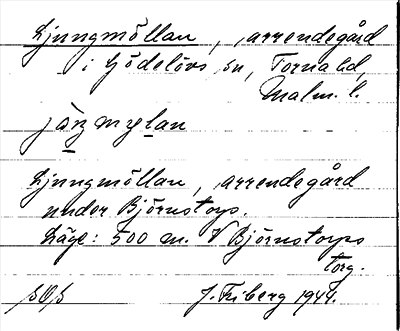 Ljungmöllan, arrendegård
i Gödelövs sn, Torna hd,
Malm. l.
jåŋmylan
Ljungmöllan, arrendegård
under Björnstorp.
Läge: 500 m. V Björnstorps
torg.
J. Friberg 1944.